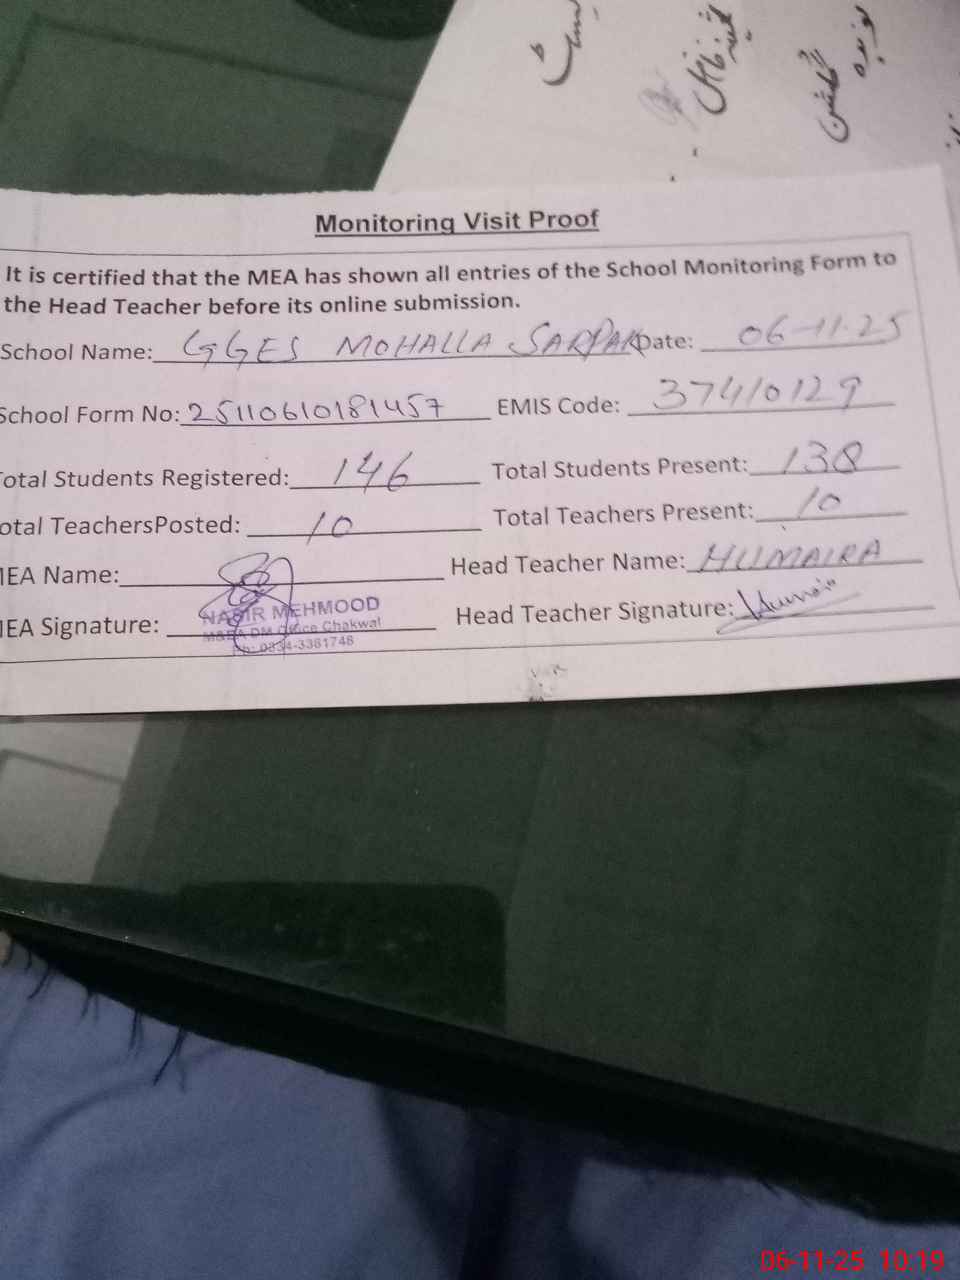 گلشن
Monitoring Visit Proof
It is certified that the MEA has shown all entries of the School Monitoring Form to
the Head Teacher before its online submission.
School Name: GGES MOHALLA SARPAK Date: 06-11-25
School Form No: 25110610181457 EMIS Code: 37410129
Total Students Registered: 146 Total Students Present: 138
otal TeachersPosted: 10 Total Teachers Present: 10
MEA Name: Head Teacher Name: HUMAIRA
MEA Signature: Head Teacher Signature: Humaira
NASIR MEHMOOD
M&EA DM Office Chakwal
Ph: 0334-3361748
06-11-25 10:19